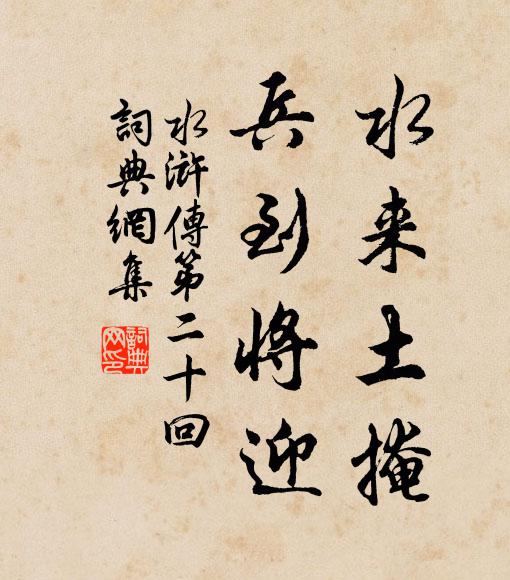 水来土掩
兵到将迎
水滸傳第二十回
詞典網集
詞典網印